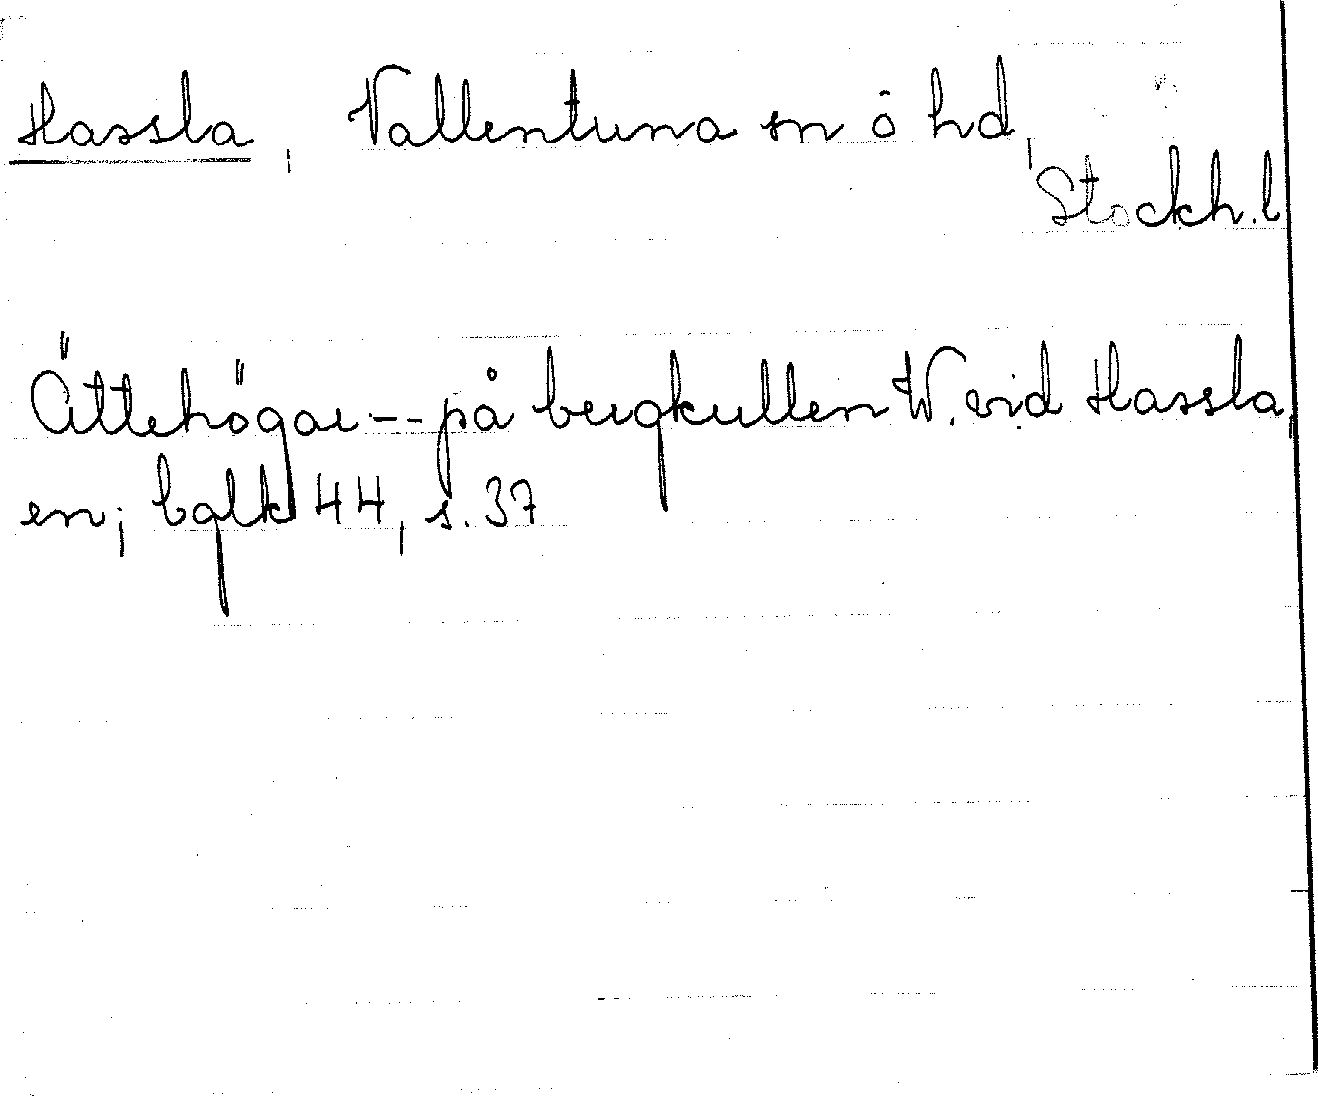 Hassla, Vallentuna sn o hd,
Stockh. l
Ättehögar -- på bergkullen W. vid Hassla,
en; bglk 44, s. 37